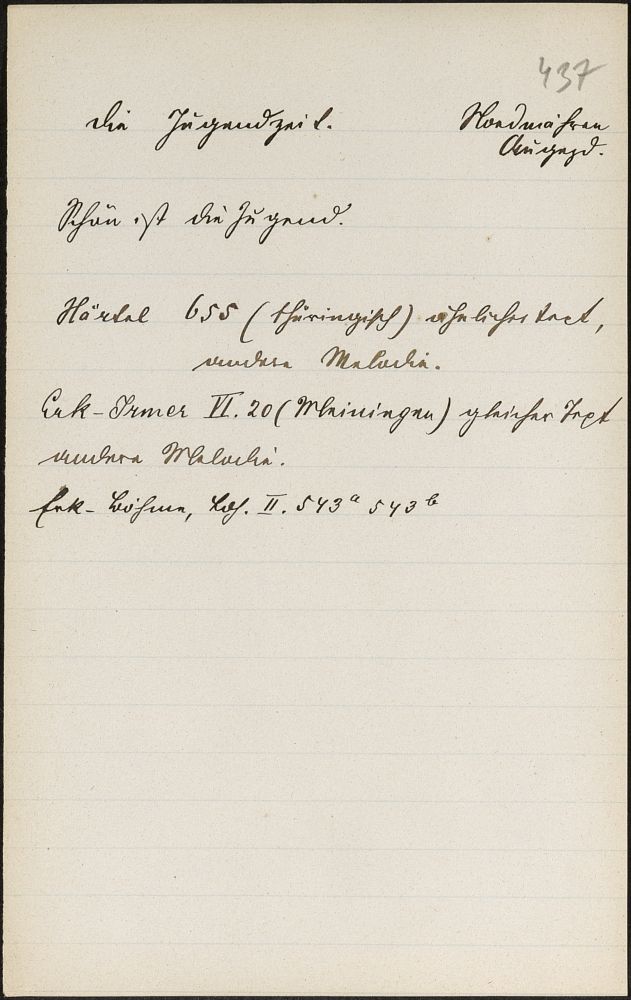 437
Die Jugendzeit. Nordmähren
Augezd.
Schön ist die Jugend.
Härtel 655 (thüringisch) ähnlicher Text,
andere Melodie.
Erk-Irmer VI. 20 (Meiningen) gleicher Text
andere Melodie.
Erk-Böhme, Lh. II. 543a 543b